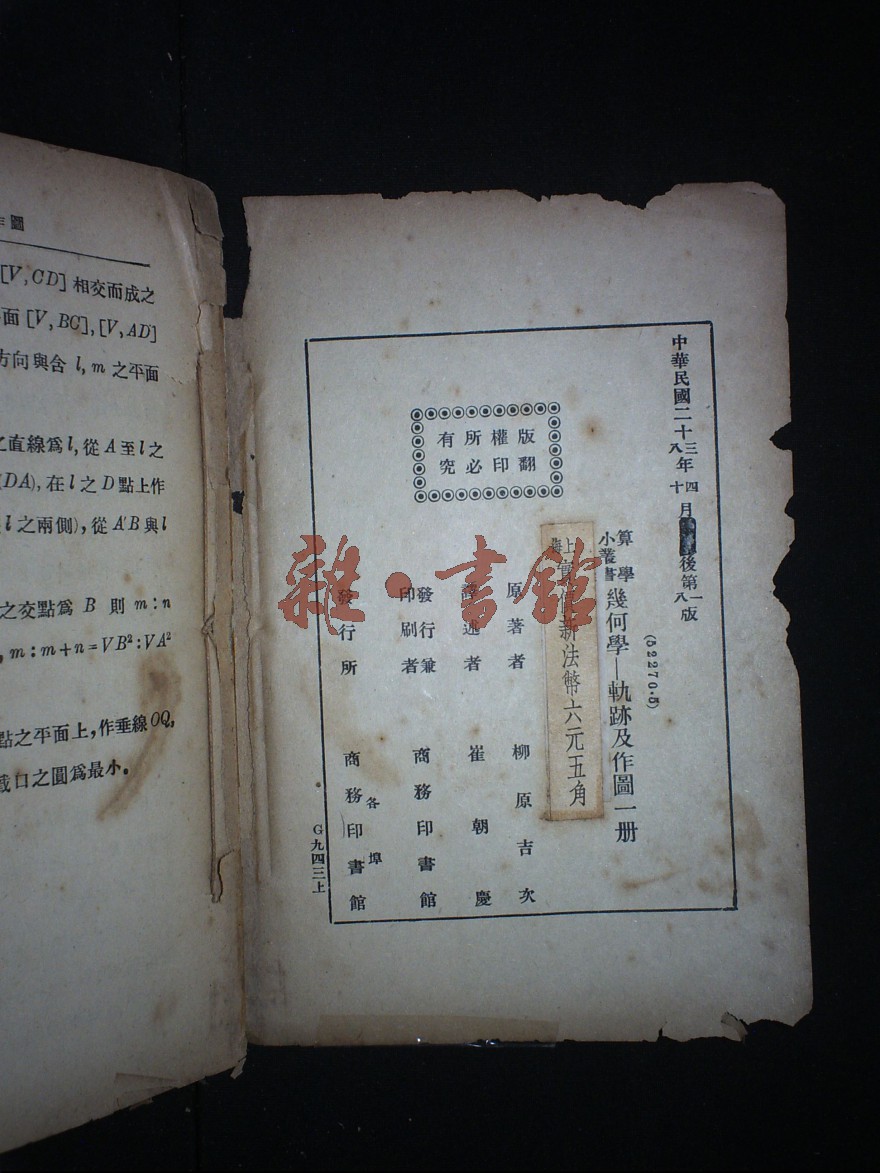 圖
[V,CD] 相交而成之
面 [V,BC],[V,AD]
方向與含 l, m 之平面
之直線爲 l, 從 A 至 l 之
(DA), 在 l 之 D 點上作
l 之兩側), 從 A'B 與 l
之交點爲 B 則 m:n
m:m+n=VB²:VA²
點之平面上, 作垂線 OQ,
截口之圓爲最小。
中華民國二十三年四月
八十
後第一版
八
版權所有
翻印必究
算學小叢書
幾何學—軌跡及作圖一册
(52270.5)
上海
實價新法幣六元五角
原著者 柳原吉次
譯述者 崔朝慶
發行兼印刷者 商務印書館
發行所 商務印書館
各埠
G九四三上
雜·書館